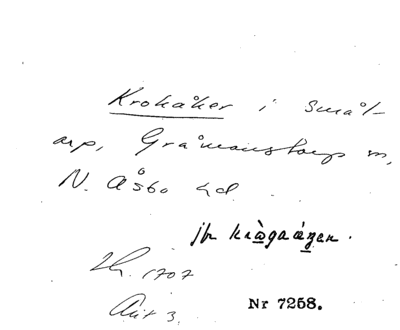 Krokåker i Smål-
arp, Gråmanstorps sn,
N. Åsbo hd.
jfr kràgaágan.
Lh. 1707
Akt 3.
Nr 7258.